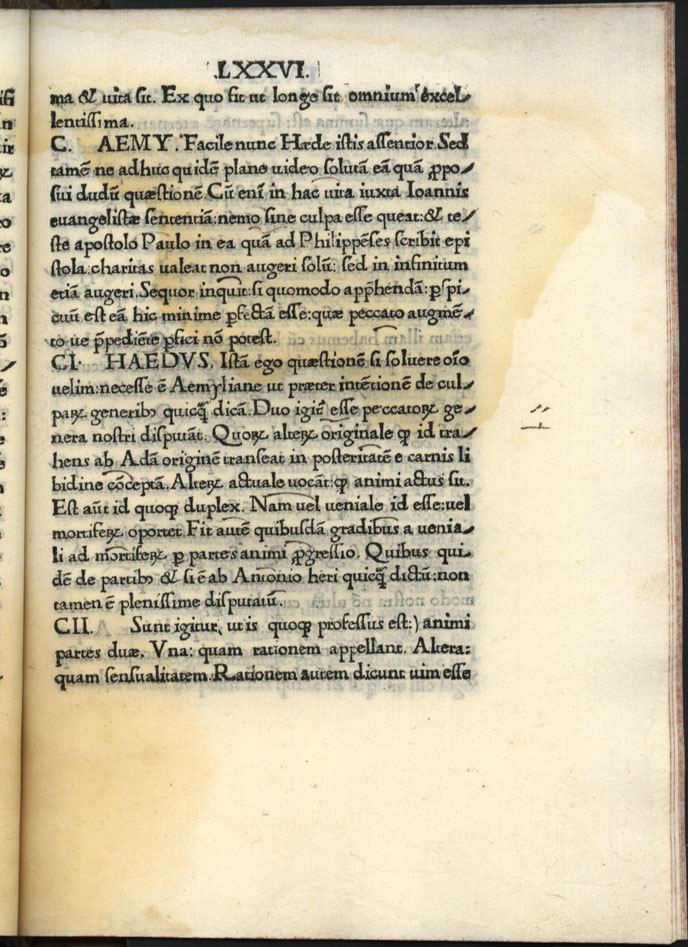 .LXXVI.
ma & uita sit. Ex quo fit ut longe sit omnium excel⸗
lentissima.
C. AEMY. Facile nunc Hæde istis assentior. Sed
tamē ne adhuc quidē plane uideo solutā eā quā ꝓpo⸗
sui dudū quæstionē. Cū eni in hac uita iuxta Ioannis
euangelistæ sententiā: nemo sine culpa esse queat: & te⸗
ste apostolo Paulo in ea quā ad Philippēses scribit epi
stola: charitas ualeat non augeri solū: sed in infinitum
etiā augeri. Sequor inquit: si quomodo appħendā: ꝑspi⸗
cuū est eā hic minime ꝑfectā esse: quæ peccato augmē⸗
to ue p̄pediēte ꝑfici nō potest.
CI. HAEDVS. Istā ego quæstionē si soluere oīo
uelim: necesse ē Aemyliane ut præter intētionē de cul⸗
paꝝ generibꝰ quicꝗ̄ dicā. Duo igit͛ esse peccatoꝝ ge⸗
nera nostri disputāt. Quoꝝ alteꝝ originale ꝙ id tra⸗
hens ab Adā originē transeat in posteritatē e carnis li
bidine cōceptā. Alteꝝ actuale uocāt: ꝙ animi actus sit.
Est aūt id quoꝗ duplex. Nam uel ueniale id esse: uel
mortifeꝝ oportet. Fit autē quibusdā gradibus a uenia⸗
li ad mortifeꝝ ꝑ partes animi ꝓgressio. Quibus qui⸗
dē de partibꝰ & si ē ab Antonio heri quicꝗ̄ dictū: non
tamen ē plenissime disputatū.
CII. Sunt igitur, ut is quoꝗ professus est:) animi
partes duæ. Vna: quam rationem appellant. Altera:
quam sensualitatem. Rationem autem dicunt uim esse